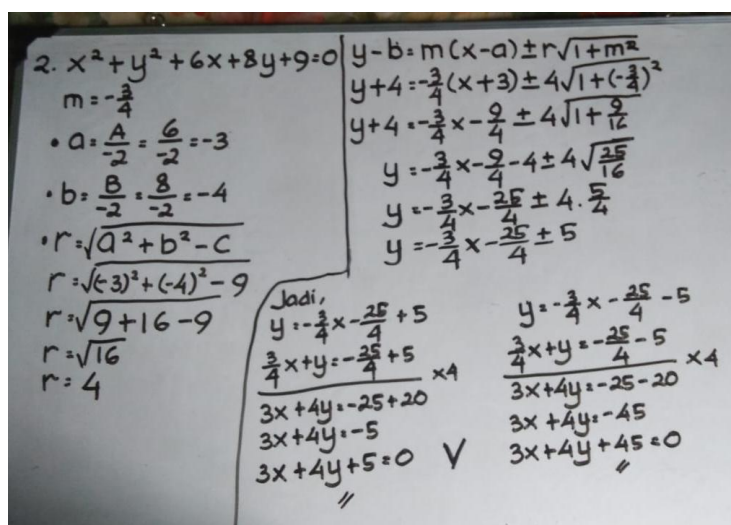 2. x² + y² + 6x + 8y + 9 = 0
m = -3/4
• a = A/-2 = 6/-2 = -3
• b = B/-2 = 8/-2 = -4
• r = √(a² + b² - C)
r = √((-3)² + (-4)² - 9)
r = √(9 + 16 - 9)
r = √16
r = 4
y - b = m(x - a) ± r√(1 + m²)
y + 4 = -3/4(x + 3) ± 4√(1 + (-3/4)²)
y + 4 = -3/4x - 9/4 ± 4√(1 + 9/16)
y = -3/4x - 9/4 - 4 ± 4√(25/16)
y = -3/4x - 25/4 ± 4 . 5/4
y = -3/4x - 25/4 ± 5
Jadi,
y = -3/4x - 25/4 + 5
3/4x + y = -25/4 + 5
×4
3x + 4y = -25 + 20
3x + 4y = -5
3x + 4y + 5 = 0 V
y = -3/4x - 25/4 - 5
3/4x + y = -25/4 - 5
×4
3x + 4y = -25 - 20
3x + 4y = -45
3x + 4y + 45 = 0